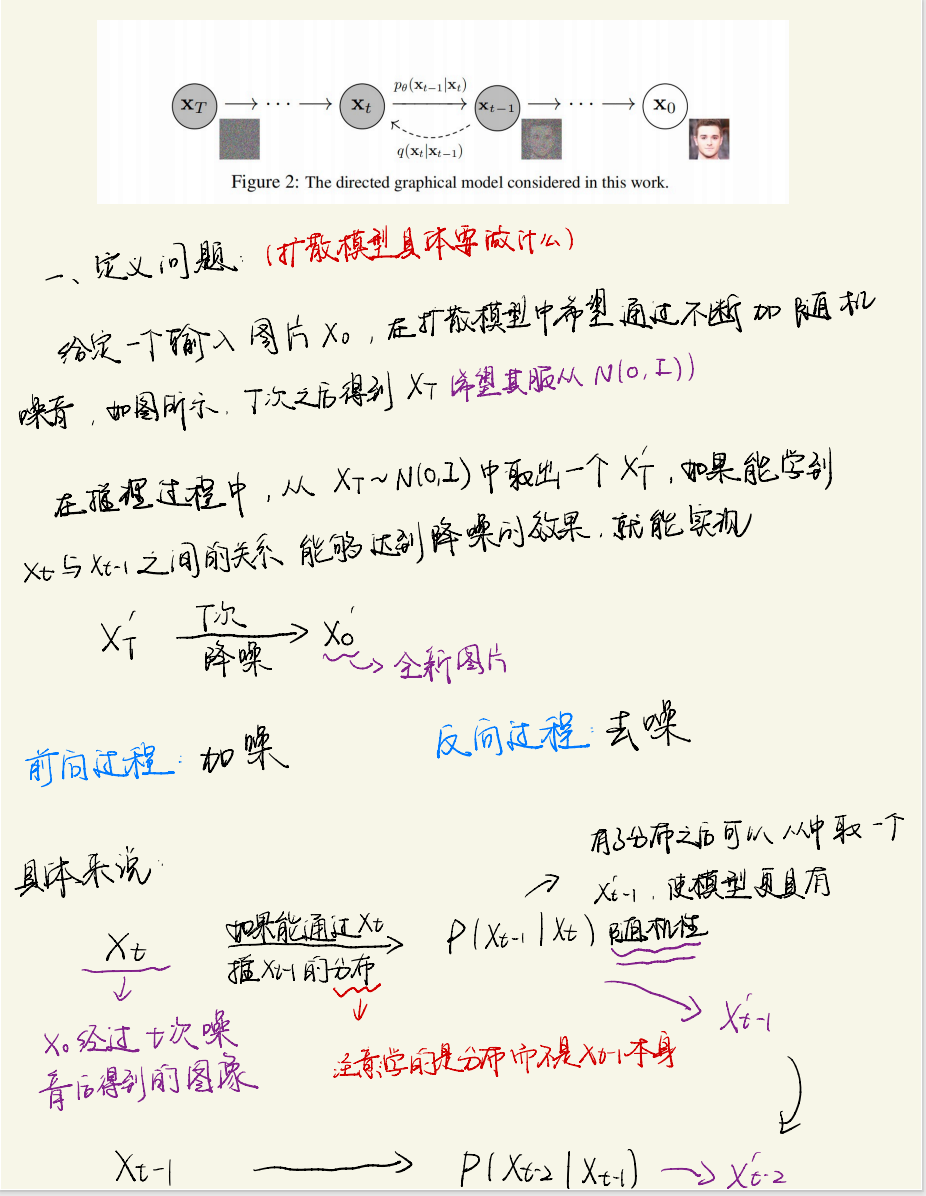 x_T → ··· → x_t p_θ(x_{t−1}|x_t) x_{t−1} → ··· → x_0
q(x_t|x_{t−1})
Figure 2: The directed graphical model considered in this work.
一、定义问题：(扩散模型具体要做什么)
给定一个输入图片 X₀，在扩散模型中希望通过不断加随机
噪音，如图所示，T次之后得到 X_T 希望其服从 N(0, I))
在推理过程中，从 X_T ~ N(0,I) 中取出一个 X_T′，如果能学到
X_t 与 X_{t-1} 之间的关系 能够达到降噪的效果，就能实现
X_T′ T次 → X₀′
降噪
→ 全新图片
前向过程：加噪 反向过程：去噪
具体来说：
有了分布之后可以从中取一个
X′_{t-1}，使模型更具有
随机性
X_t 如果能通过 X_t → P(X_{t-1} | X_t)
推 X_{t-1} 的分布
X′_{t-1}
X₀ 经过 t 次噪
音后得到的图像
注意学的是分布而不是 X_{t-1} 本身
X_{t-1} → P(X_{t-2} | X_{t-1}) → X′_{t-2}